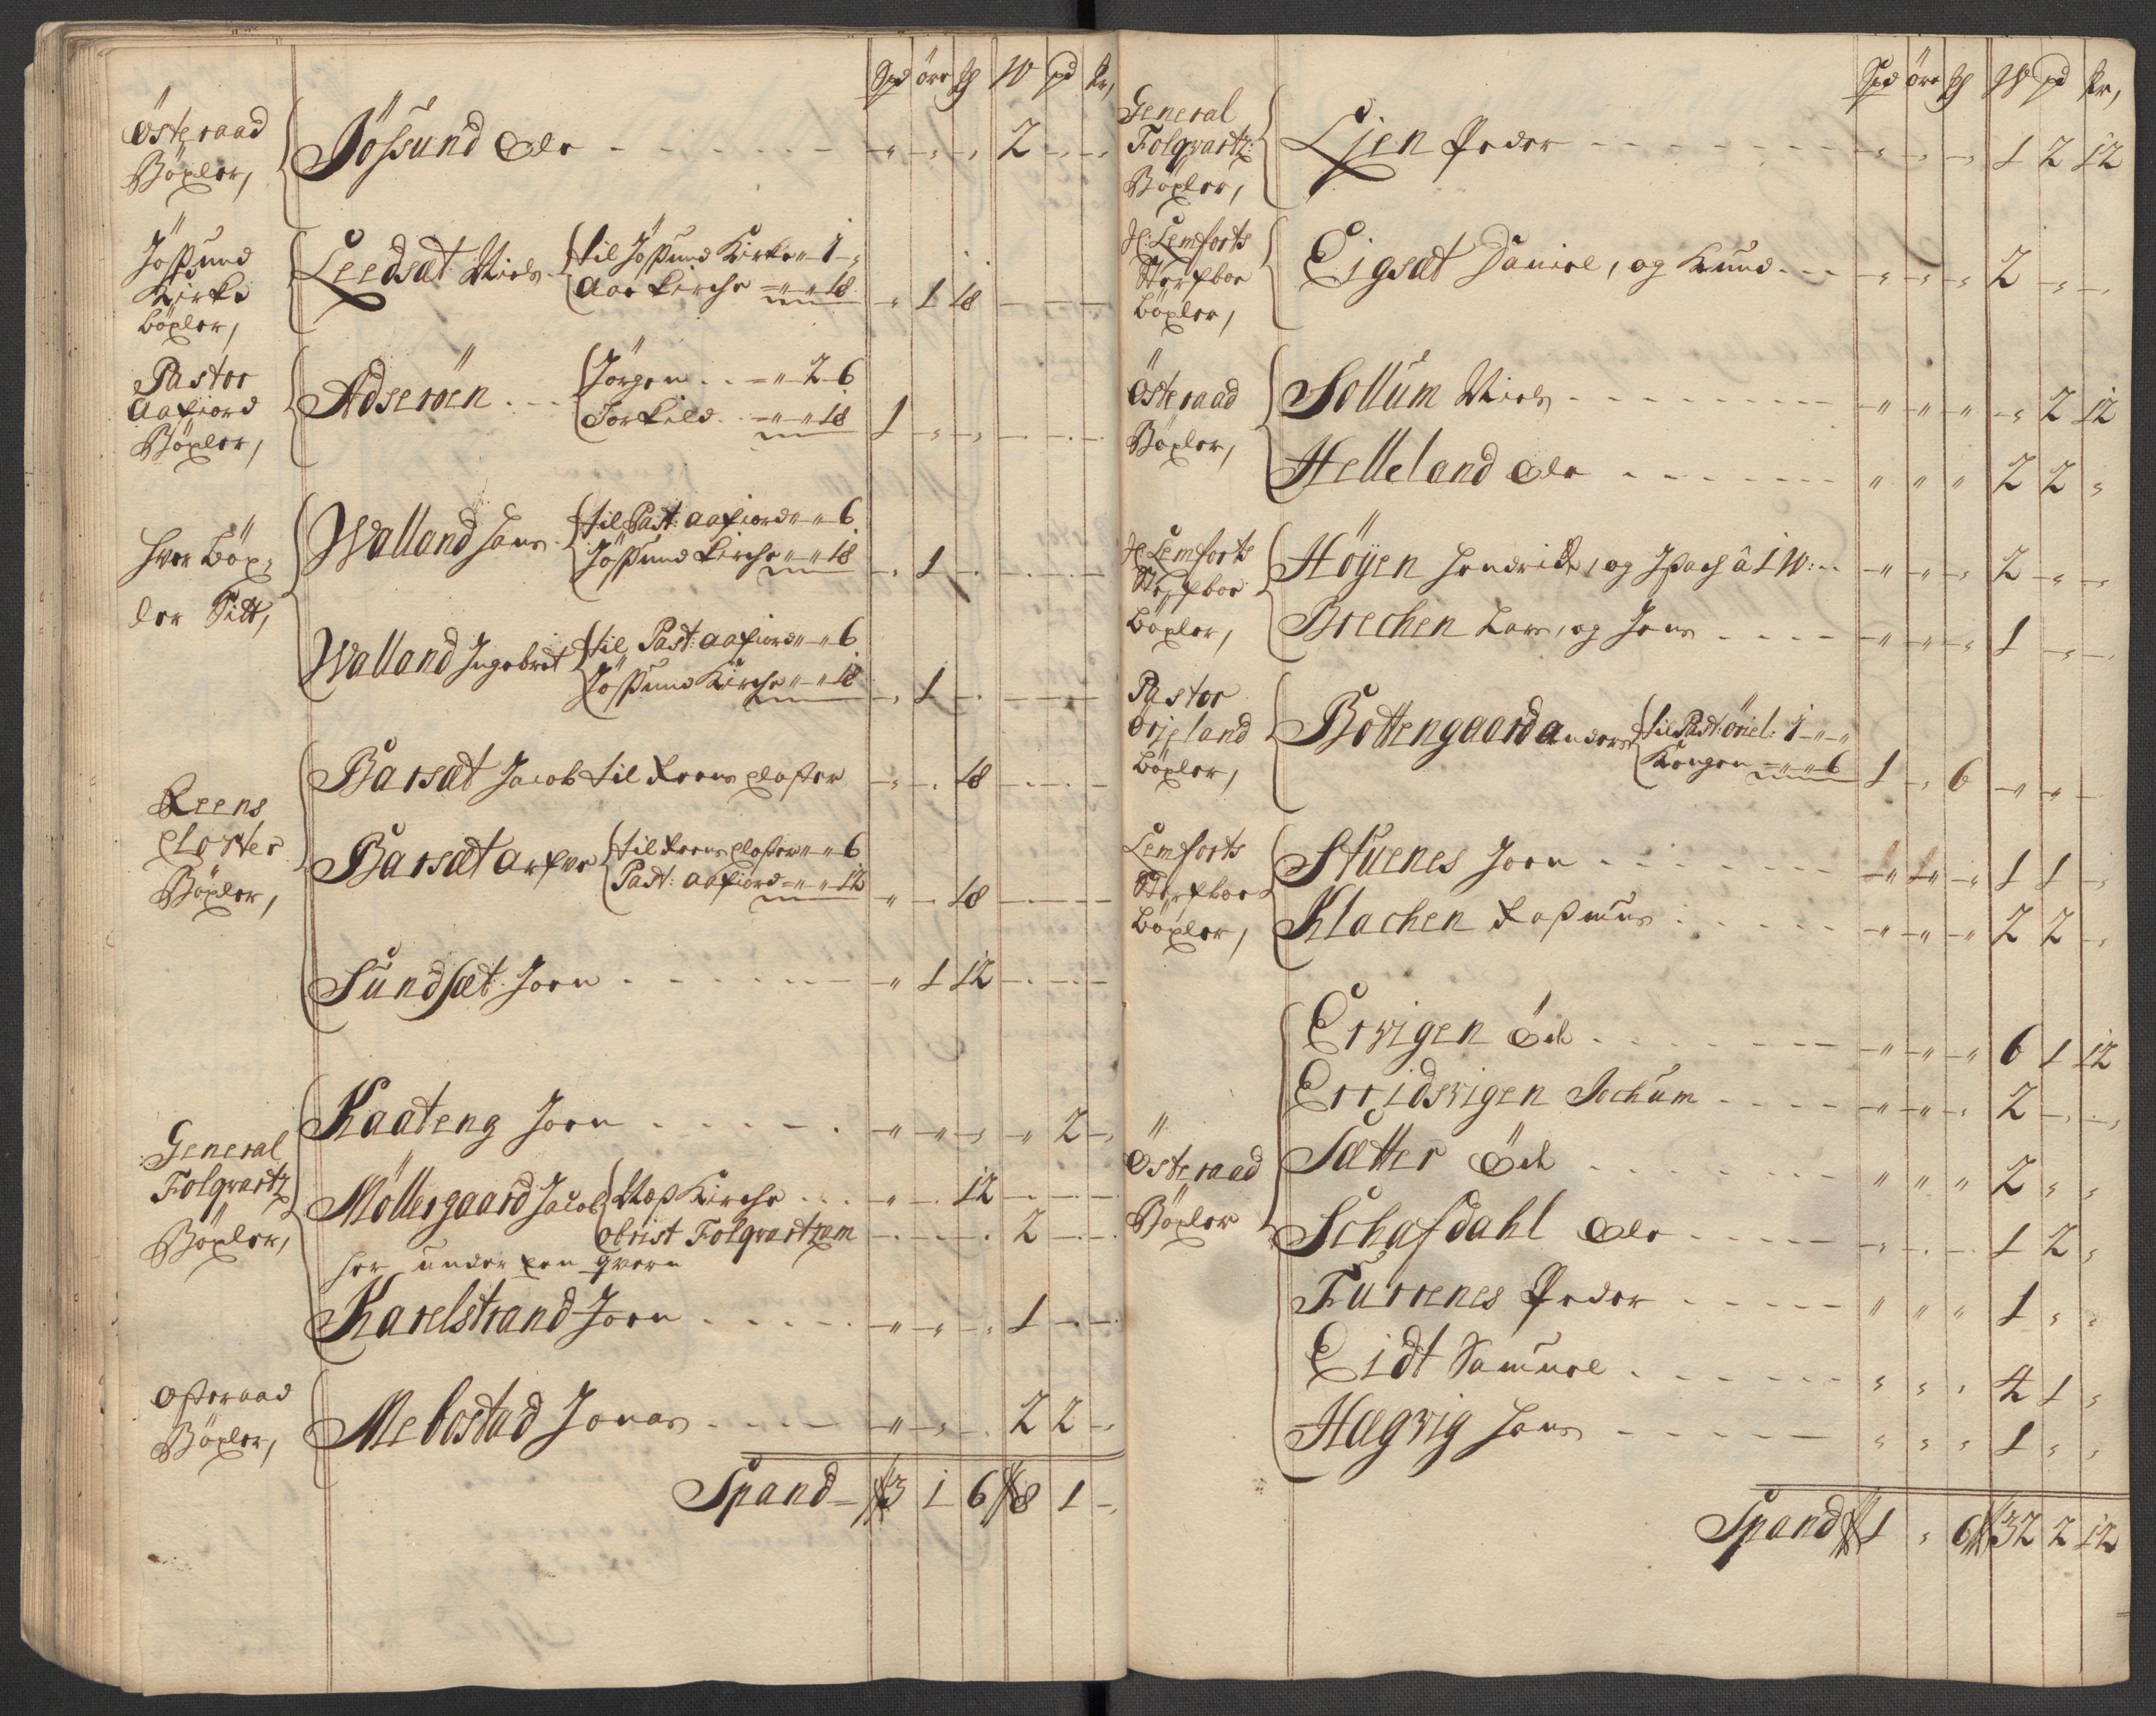 Spd öre ₰ W pd kr,
Österaad
Böxler,
Jössund Ole - - - - - - - " - " - " 2 - " - "
Jössund
Kirke
Böxler,
Leedsæt Niels
til Jössund Kirke " 1 - "
Aae Kirche - " - " 18
- " 1 18 - - -
Pastor
Aafiord
Böxler,
Adseröen . . -
Jörgen . . - " - 2 - 6
Torkild . - " - " 18
1 - " - " - - -
hver Böx-
ler Sitt,
Walland Hans
til Past: Aafiord " - " 6
Jössund Kirche " - " 18
- " 1 - - - -
Walland Ingebret
til Past: Aafiord " - " 6
Jössund Kirche " - " 18
- " 1 - - - -
Reens
Closter
Böxler,
Barsæt Jacob til Reens Closter - " - 18 - - -
Barsæt
til Reens Closter " - " 6
Past: Aafiord - " - " 12
- " - 18 - - -
Sundsæt Joen - - - - - - - " 1 12 - - -
General
Folqvartz
Böxler,
Kaateng Joen - - - - - " - " - " - " 2 - "
Möllergaard Jacob
Næss Kirche - - - " - 12 - - -
Obrist Folqvartzen - - - 2 - -
her under en qvern
Karelstrand Joen - - - - - " - " - " 1 - -
Osteraad
Böxler,
Mebostad Jonas - - - - " - " - 2 2 - "
Spand - 3 1 6 18 1 - "
Spd öre ₰ W pd kr,
General
Folqvartz:
Böxler,
Lien Peder - - - - - - - " - - 1 2 12
H: Lemforts
Sterfboe
Böxler,
Eigsæt Daniel, og Knud - - - " - " - " 2 - " - "
Österaad
Böxler,
Sollum Niels - - - - - - - " - " - " - " 2 12
Helleland Ole - - - - - - " " " 2 2 "
H: Lemforts
Sterfboe
Böxler,
Höyen Hendrich, og Isach â 1 W: - - " - " - " 2 - " - "
Brechen Lars, og Jens - - - - " - " - " 1 - " - "
Pastor
Örjeland
Böxler,
Bottengaard Anders
til Past: öriel: 1 - " - "
Kongen - " - " 6
1 - " 6 - " - " -
Lemforts
Sterfboe
Böxler,
Stuenes Joen - - - - - - " - " - " 1 1 - "
Klachen Rasmus - - - - - " - " - " 2 2 - "
Österaad
Böxler
Ervigen Ole - - - - - - " - " - " 6 1 12
Erridsvigen Jochum - - - - " - " - " 2 - " - "
Sætter Ole - - - - - - " " " 2 " "
Schafdahl Ole - - - - - " - " - " 1 2 "
Furrenes Peder - - - - - " " " 1 " "
Eidt Samuel - - - - - - " " " 4 1 "
Hægvig Hans - - - - - " " " 1 " "
Spand 1 " 6 32 2 12